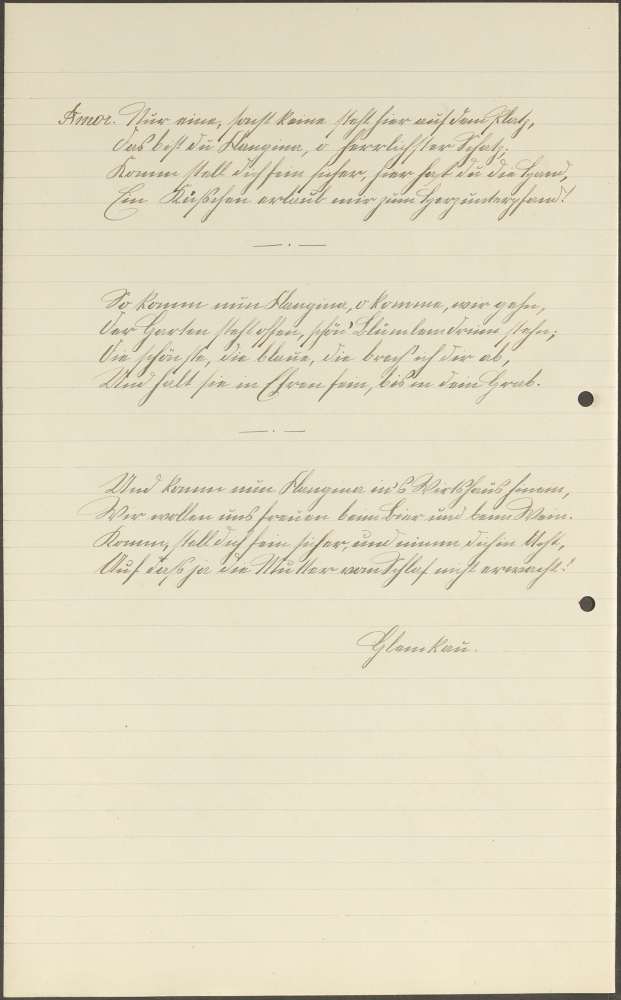 Amor. Nur eine, sonst keine steht hier auf dem Platz,
Das bist du, o herrlichster Schatz;
Komm stell dich fein sicher, hier hast du die Hand,
Ein Küsschen erlaub mir zum Herzunterpfand!
So komm nun, o komme, wir gehn,
Der Garten steht offen, schön Blümlein drinn stehn;
Die schönste, die blaue, die brech ich dir ab,
Und halt sie in Ehren fein, bis in dein Grab.
Und komm nun in's Wirtshaus hinein,
Wir wollen uns freuen beim Bier und beim Wein.
Komm, stell dich fein sicher, und nimm dich in Acht,
Auf dass ja die Mutter vom Schlaf nicht erwacht!
Glemkau.